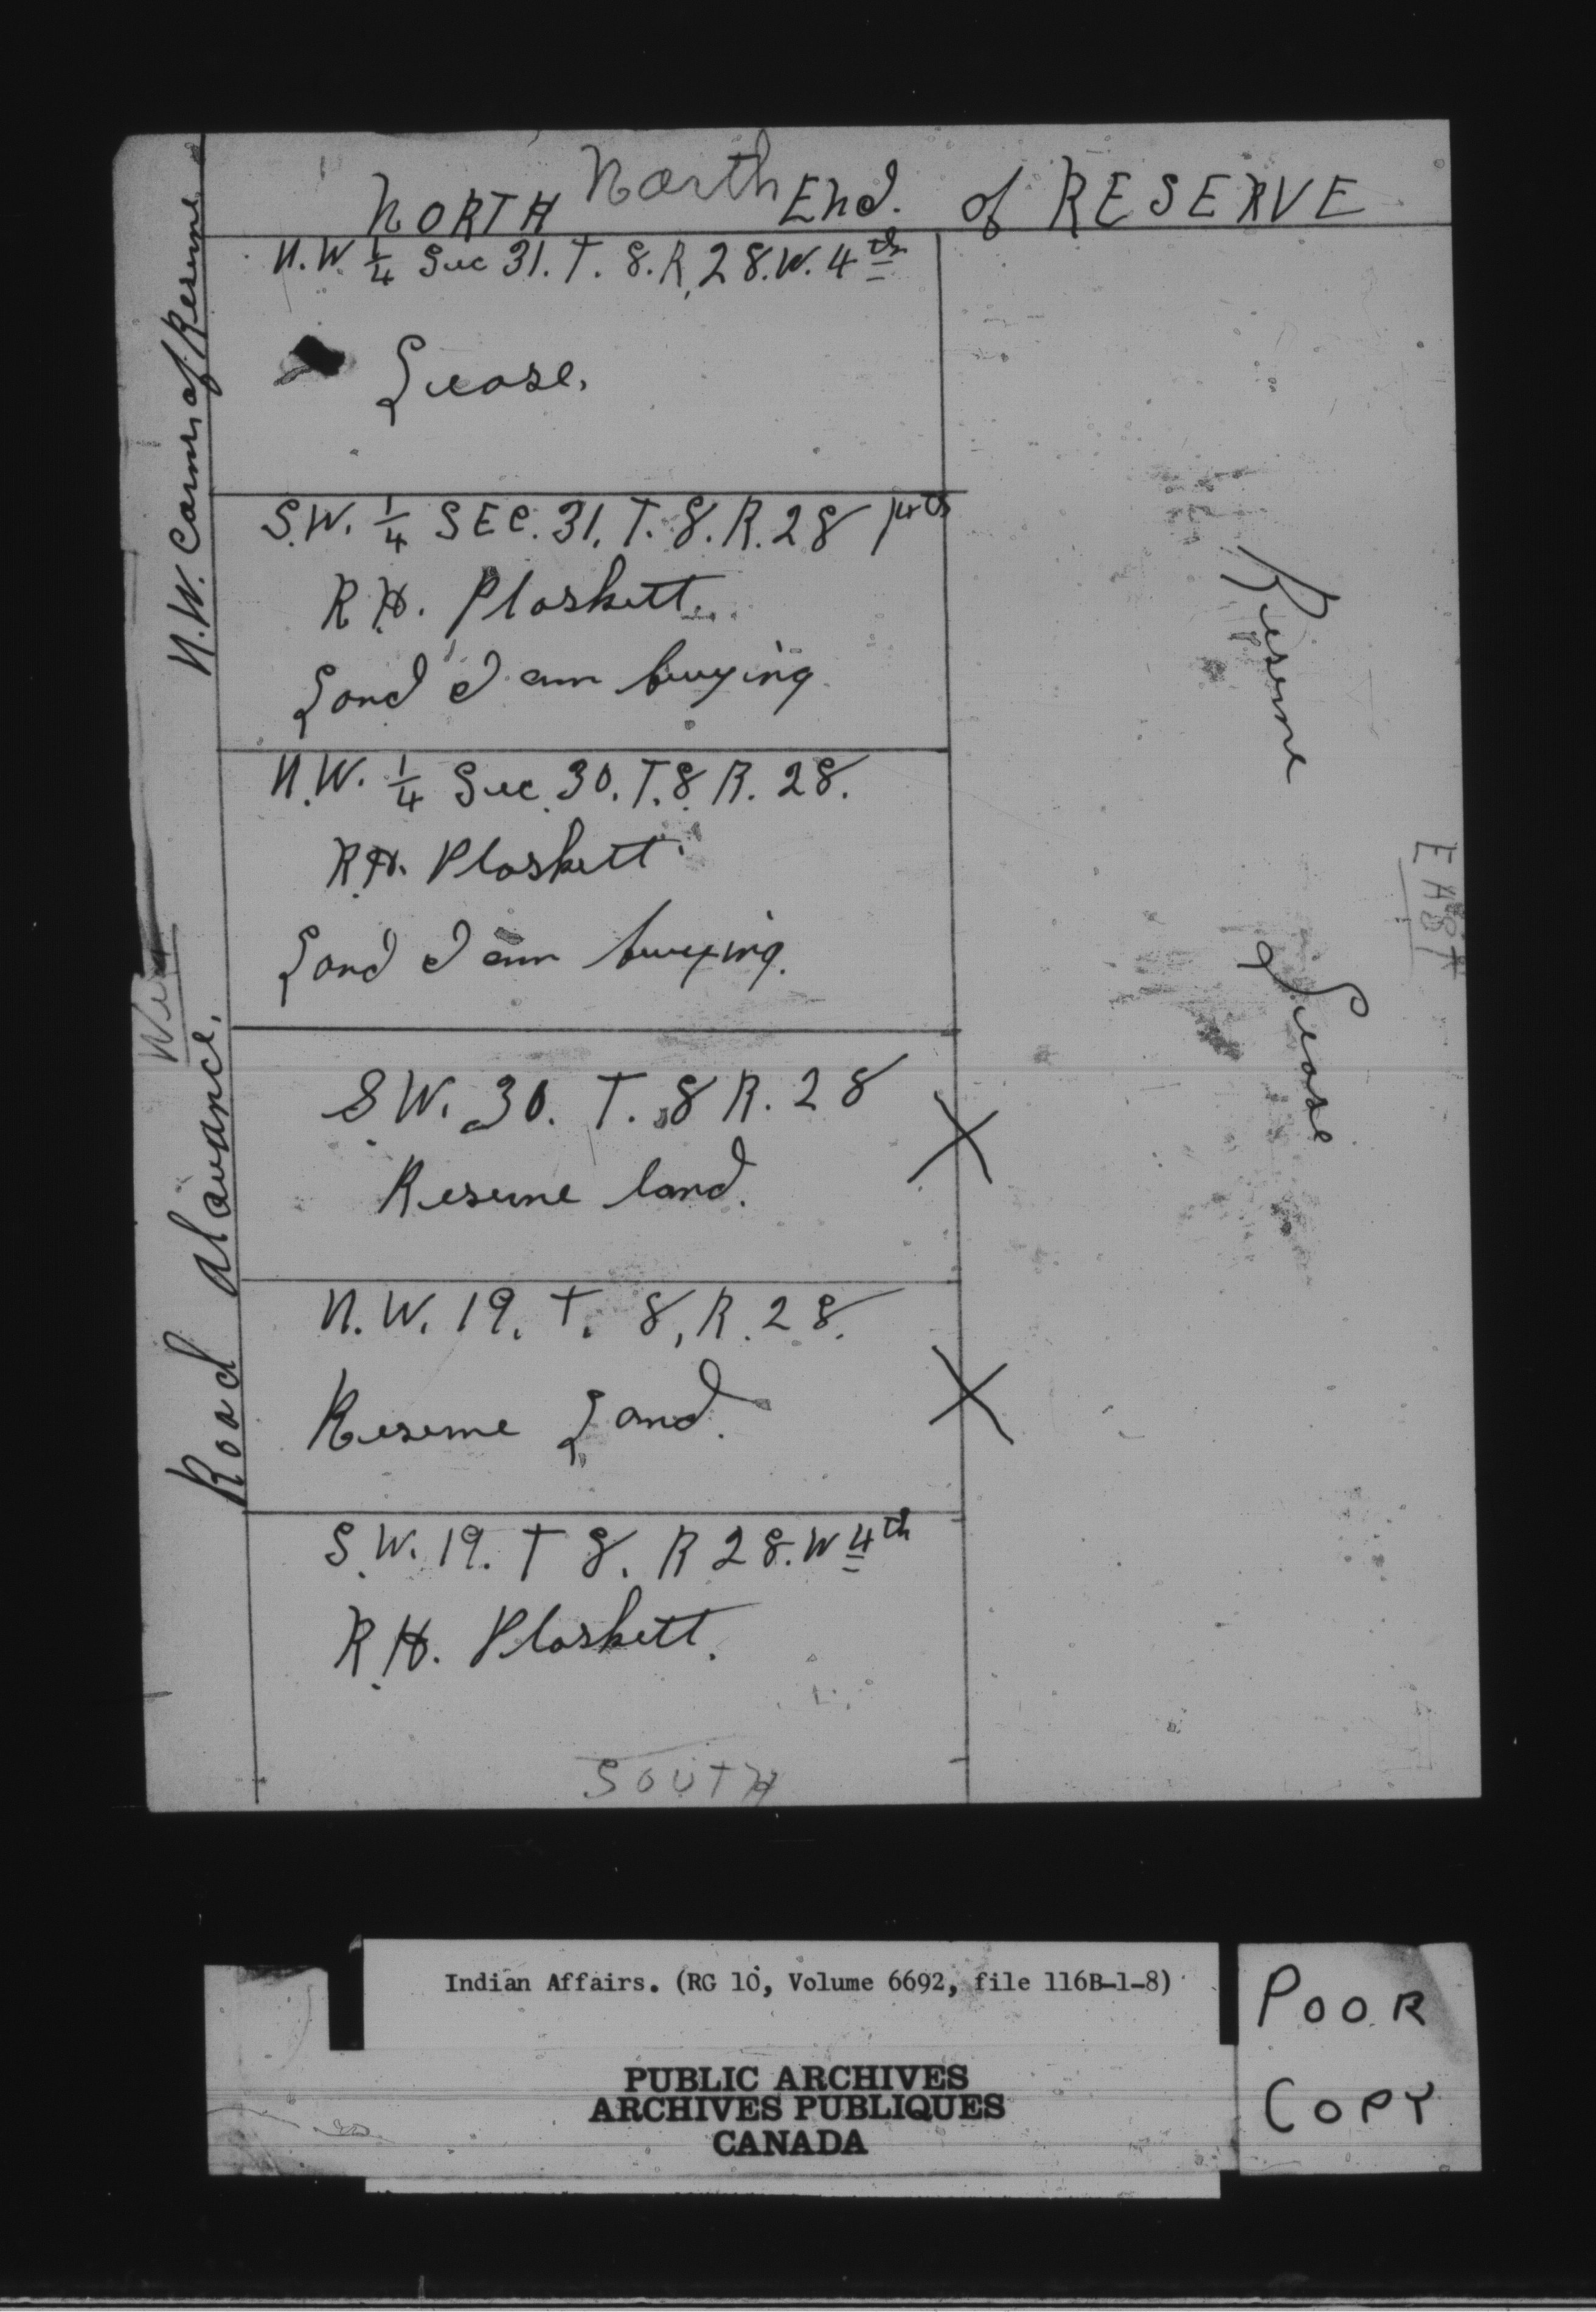 North
NORTH End. of RESERVE
N.W. Corner of Reserve
N.W. 1/4 Sec 31. T. 8. R. 28. W. 4th
Lease.
S.W. 1/4 SEC. 31. T. 8. R. 28 4th
R.H. Ploskett.
Land I am buying
N.W. 1/4 Sec. 30. T. 8 R. 28.
R.H. Ploskett.
Land I am buying.
Road alowance.
S.W. 30. T. 8 R. 28
X
Reserve land.
N.W. 19. T. 8, R. 28.
X
Reserve Land.
S.W. 19. T 8. R 28. W 4th
R.H. Ploskett.
SOUTH
Reserve Lease
EAST
Indian Affairs. (RG 10, Volume 6692, file 116B-1-8)
PUBLIC ARCHIVES
ARCHIVES PUBLIQUES
CANADA
POOR
COPY